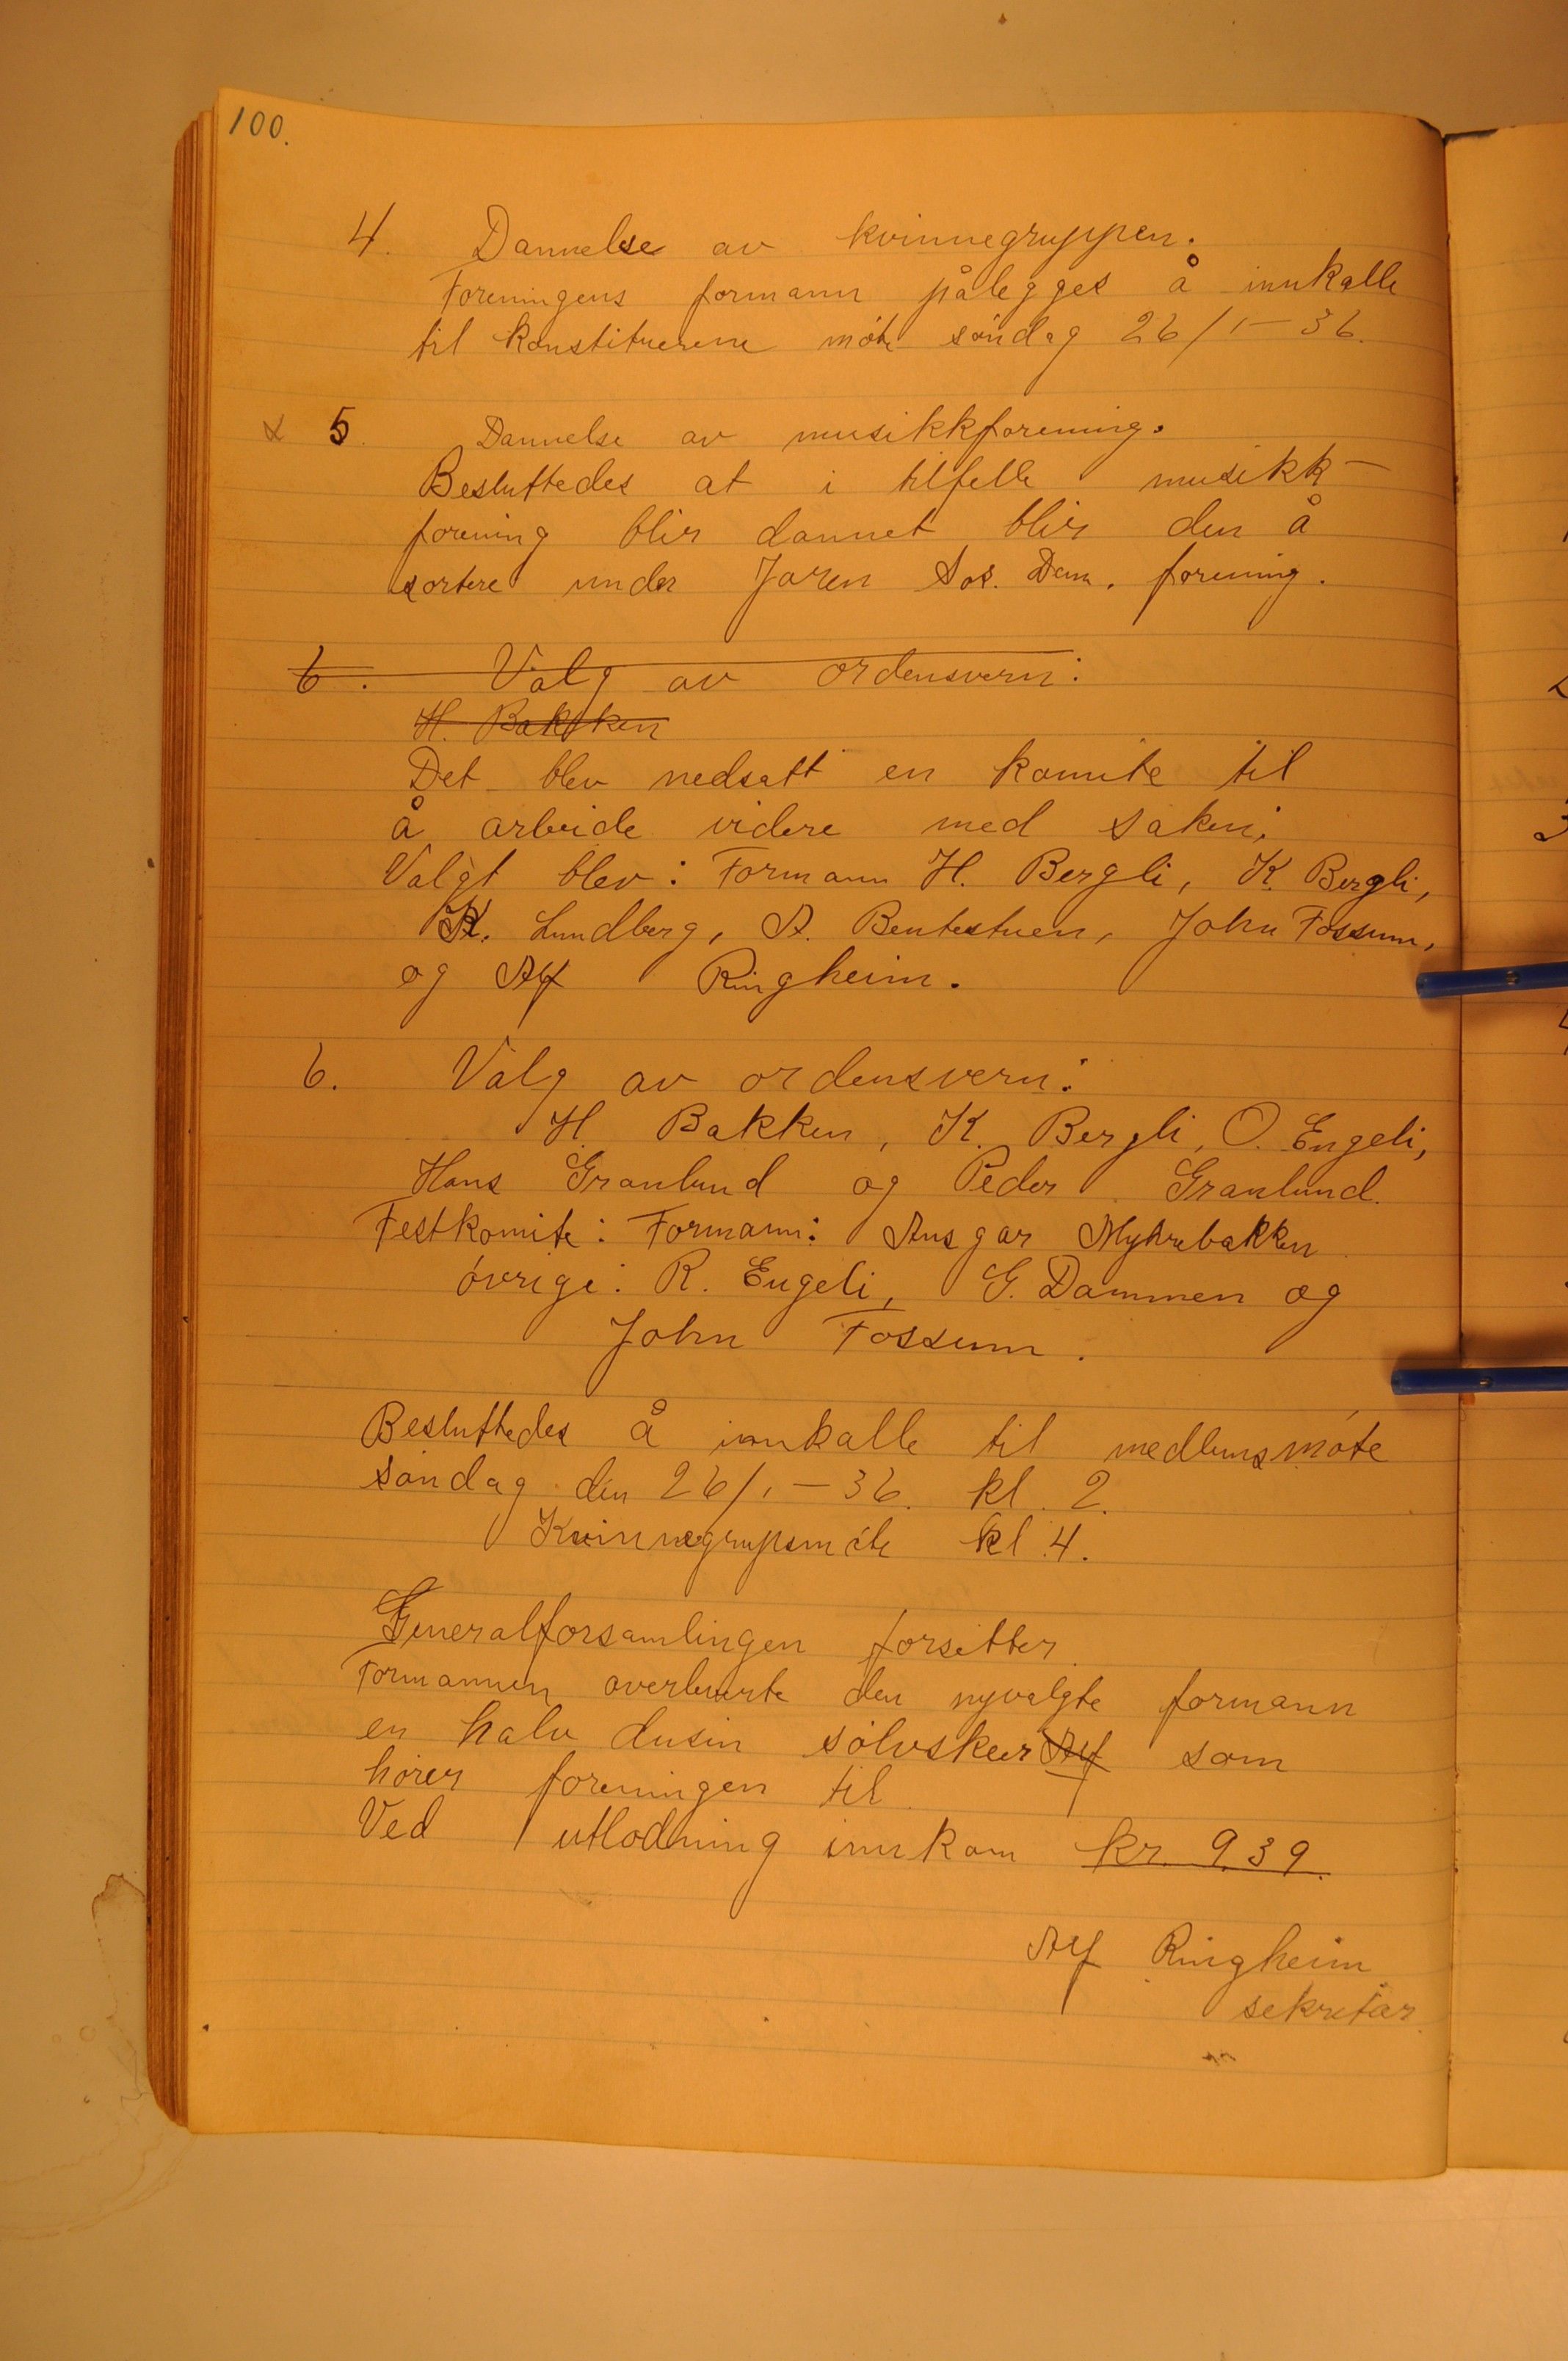 100.
4. Dannelse av kvinnegruppen.
Foreningens formann pålegges å innkalle
til konstituerene møte søndag 26/1-36.
x 5 Dannelse av musikkforening.
Besluttedes at i tilfelle musikk-
forening blir dannet blir den å
sortere under Jaren Sos. Dem. forening.
6. Valg av ordensvern:
H. Bakken
Det blev nedsatt en komite til
å arbeide videre med saken.
Valgt blev: Formann H. Bergli, K. Bergli,
K. Lundberg, A. Bentestuen, John Fossum,
og Alf Ringheim.
6. Valg av ordensvern:
H. Bakken, K. Bergli, O. Engeli,
Hans Granlund og Peder Granlund.
Festkomite: Formann: Ansgar Myhrebakken
øvrige: R. Engeli, G. Dammen og
John Fossum.
Besluttedes å innkalle til medlemsmøte
søndag den 26/1-36. kl. 2.
Kvinnegrupsmøte kl 4.
Generalforsamlingen forsetter.
Formannen overleverte den nyvalgte formann
en halv dusin sølvskeer Alf som
hører foreningen til
Ved utlodning innkom kr. 9.39.
Alf Ringheim
sekretær